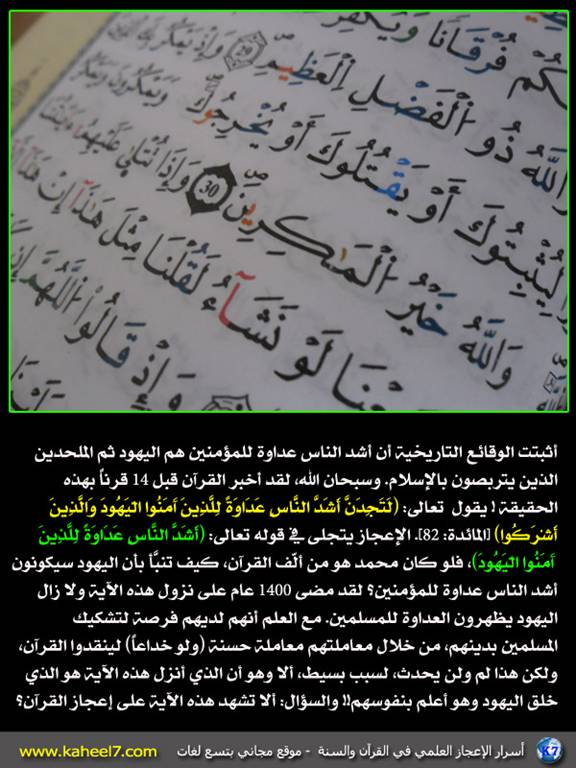 كُمْ فُرْقَانًا وَيُكَفِّرْ
وَاللَّهُ ذُو الْفَضْلِ الْعَظِيمِ 29 وَإِذْ يَمْكُرُ بِكَ الَّذِينَ
لِيُثْبِتُوكَ أَوْ يَقْتُلُوكَ أَوْ يُخْرِجُوكَ وَيَمْكُرُونَ وَيَمْكُرُ
وَاللَّهُ خَيْرُ الْمَـٰكِرِينَ 30 وَإِذَا تُتْلَىٰ عَلَيْهِمْ ءَايَـٰتُنَا
عْنَا لَوْ نَشَآءُ لَقُلْنَا مِثْلَ هَـٰذَآ إِنْ هَـٰذَآ
وَإِذْ قَالُوا اللَّهُمَّ إِن
أثبتت الوقائع التاريخية أن أشد الناس عداوة للمؤمنين هم اليهود ثم الملحدين
الذين يتربصون بالإسلام. وسبحان الله، لقد أخبر القرآن قبل 14 قرناً بهذه
الحقيقة! يقول تعالى: (لَتَجِدَنَّ أَشَدَّ النَّاسِ عَدَاوَةً لِلَّذِينَ آَمَنُوا الْيَهُودَ وَالَّذِينَ
أَشْرَكُوا) [المائدة: 82]. الإعجاز يتجلى في قوله تعالى: (أَشَدَّ النَّاسِ عَدَاوَةً لِلَّذِينَ
آَمَنُوا الْيَهُودَ)، فلو كان محمد هو من ألّف القرآن، كيف تنبَّأ بأن اليهود سيكونون
أشد الناس عداوة للمؤمنين؟ لقد مضى 1400 عام على نزول هذه الآية ولا زال
اليهود يظهرون العداوة للمسلمين. مع العلم أنهم لديهم فرصة لتشكيك
المسلمين بدينهم، من خلال معاملتهم معاملة حسنة (ولو خداعاً) لينقدوا القرآن،
ولكن هذا لم ولن يحدث، لسبب بسيط، ألا وهو أن الذي أنزل هذه الآية هو الذي
خلق اليهود وهو أعلم بنفوسهم!! والسؤال: ألا تشهد هذه الآية على إعجاز القرآن؟
K7 أسرار الإعجاز العلمي في القرآن والسنة - موقع مجاني بتسع لغات www.kaheel7.com